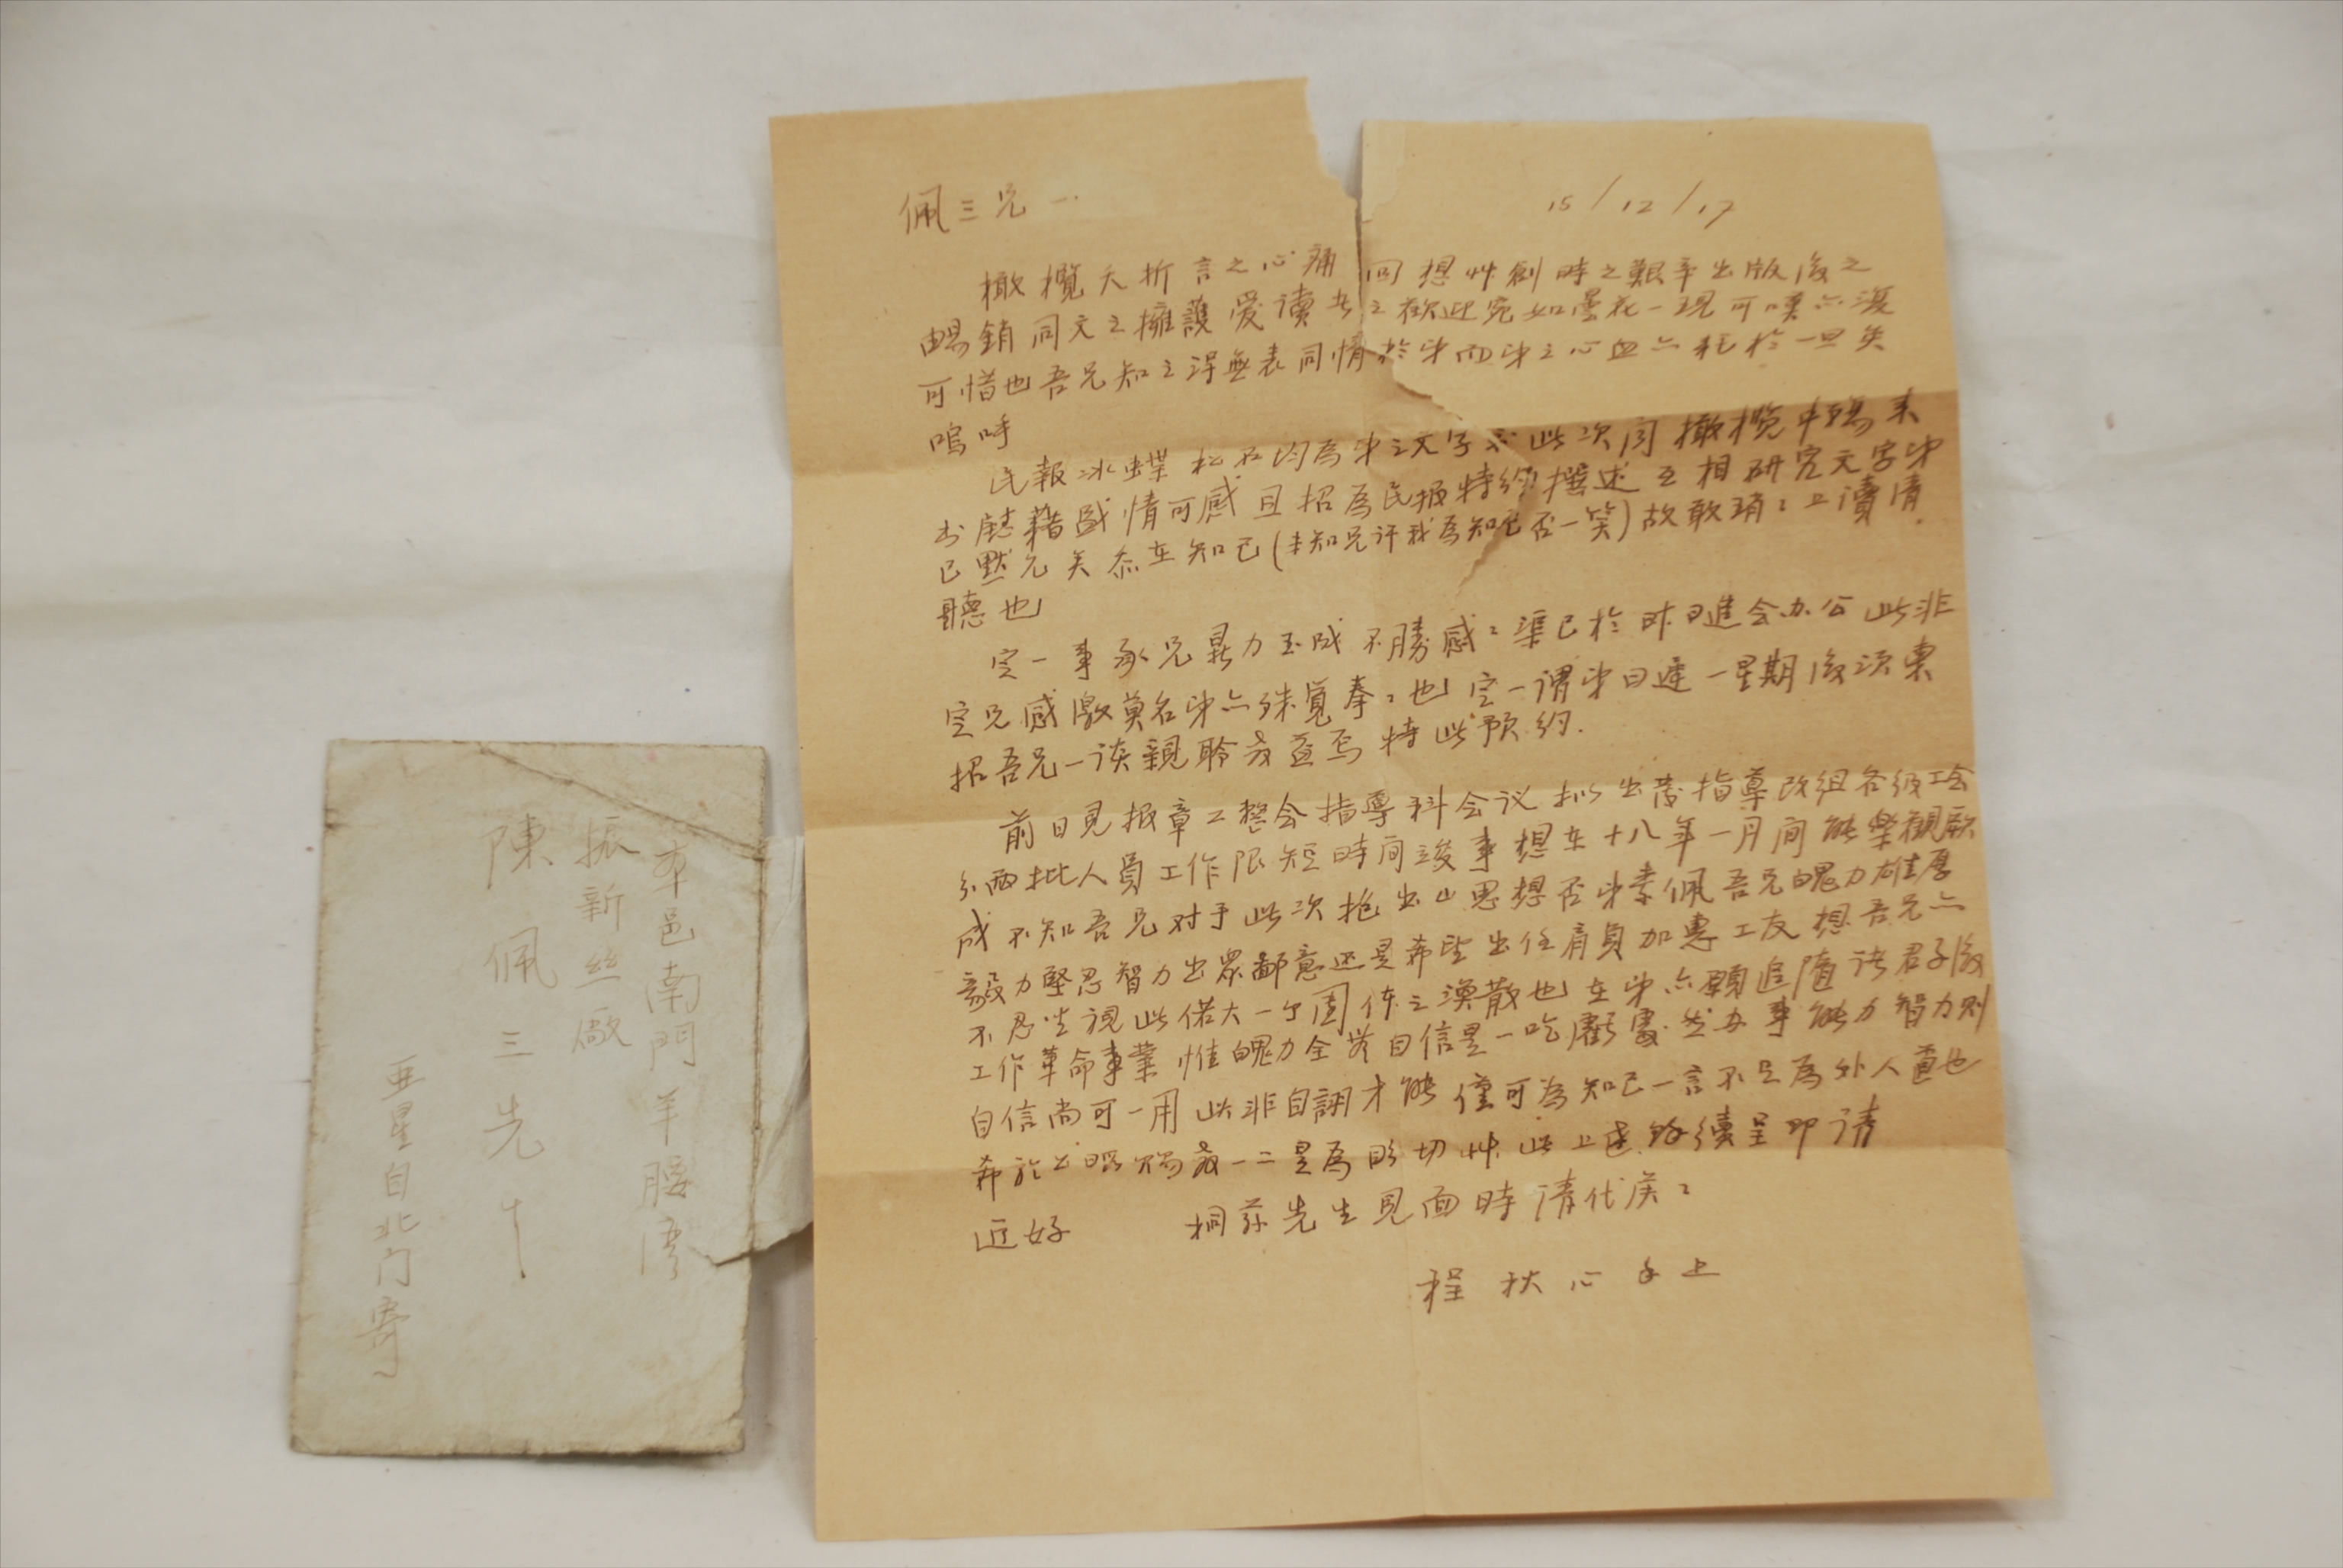 佩三兄
15/12/17
橄欖夭折言之心痛回想艸創時之艱辛出版後之
暢銷同文之擁護愛读者之歡迎宛如曇花一現可嘆亦復
可惜也吾兄知之得無表同情於弟而弟之心血亦耗於一旦矣
嗚呼
民報冰蝶松石均為弟之文字交此次闻橄欖中殤来
书慰藉盛情可感且招為民报特约撰述互相研究文字弟
已默允矣忝在知己(未知兄许我為知己否一笑)故敢琐〻上瀆清
聽也
定一事承兄鼎力玉成不勝感〻渠已於昨日進会办公此非
定兄感激莫名弟亦殊覺奉〻也定一谓弟曰遲一星期後须柬
招吾兄一谈親聆教益焉特此预约.
前日見报章工整会指導科会议拟出发指導改组各级工会
分两批人員工作限短時间竣事想在十八年一月间能樂觀厥
成不知吾兄对于此次抱出山思想否弟素佩吾兄魄力雄厚
毅力堅忍智力出眾鄙意还是希望出任肩負加惠工友想吾兄亦
不忍坐視此偌大一个团体之渙散也在弟亦願追随诸君子後
工作革命事業惟魄力全觉自信是一吃虧處然办事能力智力则
自信尚可一用此非自詡才能僅可為知己一言不足為外人道也
希於公暇賜教一二是為盼切艸此上达餘續呈即请
近好 桐荪先生見面時请代候〻
程秋心手上
本邑南門羊腰湾
振新丝廠
陳佩三先生
亚星自北门寄